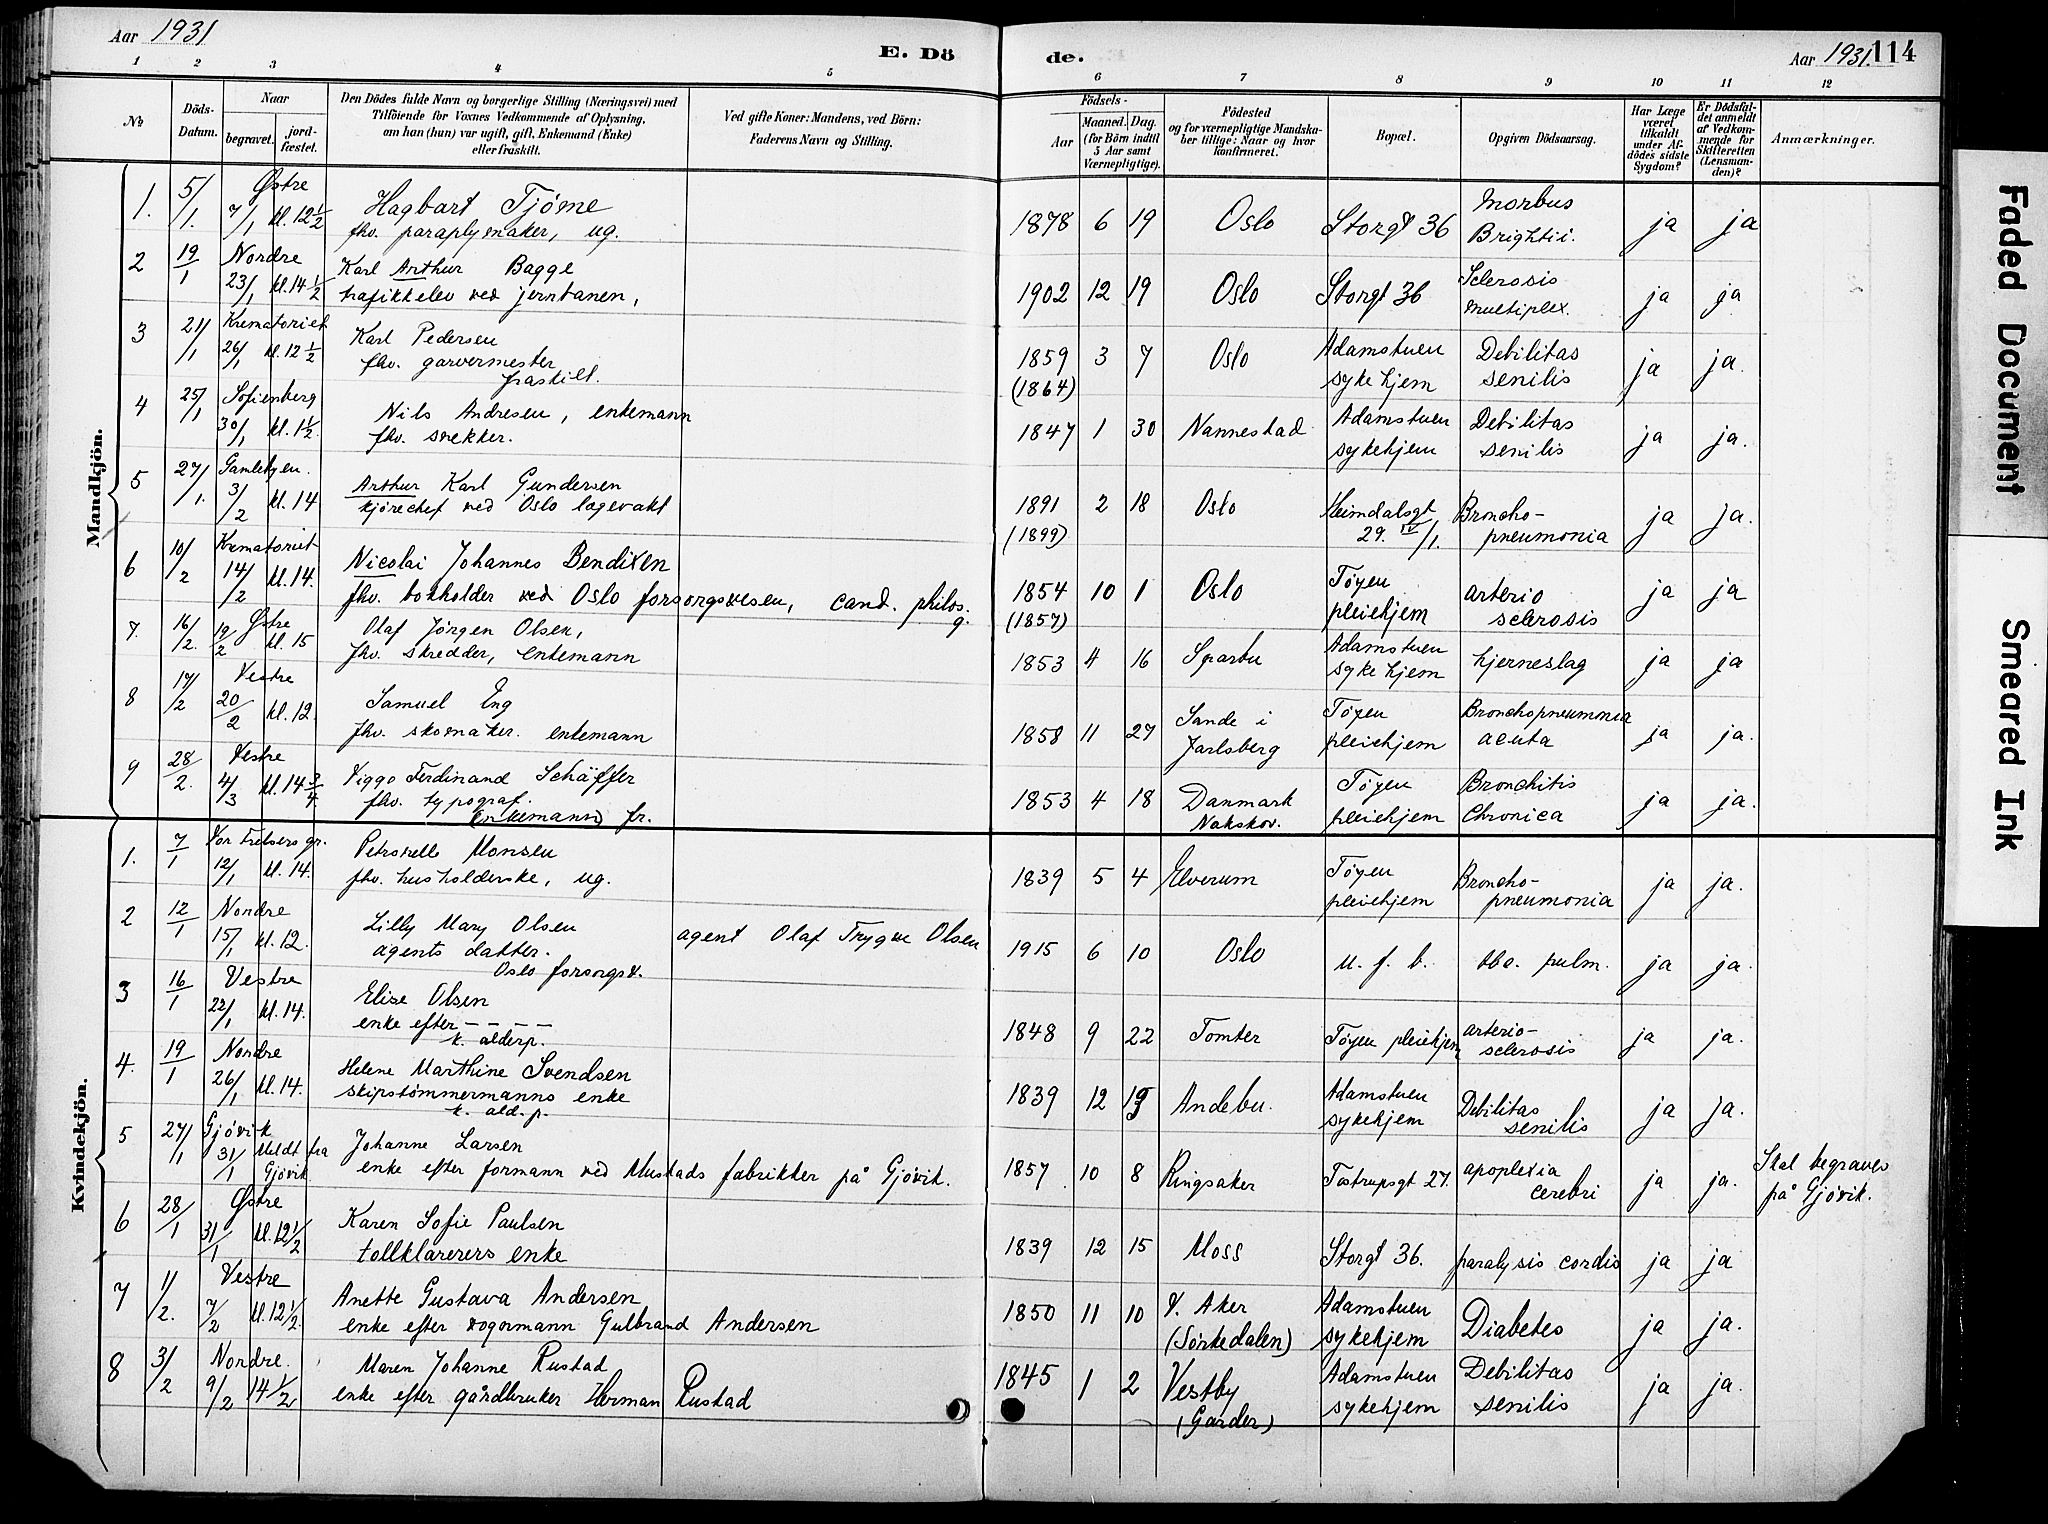 Aar 1931
E. Dö
de.
Aar 1931. 114
1 2 3 4 5 6 7 8 9 10 11 12
No
Döds-Datum.
Naar
begravet.
jord-fæstet.
Den Dödes fulde Navn og borgerlige Stilling (Næringsvei) med
Tilföiende for Voxnes Vedkommende af Oplysning,
om han (hun) var ugift, gift, Enkemand (Enke)
eller fraskilt.
Ved gifte Koner: Mandens, ved Börn:
Faderens Navn og Stilling.
Födsels-
Aar
Maaned. Dag.
(for Börn indtil
5 Aar samt
Værnepligtige).
Födested
og for værnepligtige Mandska-
ber tillige: Naar og hvor
konfirmeret.
Bopæl.
Opgiven Dödsaarsag.
Har Læge
været
tilkaldt
under Af-
dödes sidste
Sygdom?
Er Dödsfal-
det anmeldt
af Vedkom-
mende for
Skifteretten
(Lensman-
den)?
Anmærkninger.
Mandkjön.
1. 5/1. Østre 7/1 kl. 12 1/2
Hagbart Tjøme
fhv. paraplymaker, ug.
1878 6 19 Oslo Storgt 36 Morbus Brightii. ja ja
2 19/1 Nordre 23/1 kl. 14 1/2
Karl Arthur Bagge
trafikkelev ved jernbanen,
1902 12 19 Oslo Storgt 36 Sclerosis multiplex. ja ja
3 21/1 Krematoriet 26/1 kl. 12 1/2
Karl Pedersen
fhv. garvermester
fraskilt.
1859 (1864) 3 7 Oslo Adamstuen sykehjem Debilitas senilis ja ja.
4 25/1 Sofienberg 30/1 kl. 1 1/2.
Nils Andresen, enkemann
fhv. snekker.
1847 1 30 Nannestad Adamstuen sykehjem Debilitas senilis ja ja.
5 27/1. Gamlebyen. 3/2 kl. 14
Arthur Karl Gundersen
kjørechef ved Oslo legevakt
1891 (1899) 2 18 Oslo Heimdalsgt 29. IV/1. Broncho-pneumonia ja ja.
6 10/2 Krematoriet 14/2 kl. 14.
Nicolai Johannes Bendixen
fhv. bokholder ved Oslo forsorgsvesen, cand. philos.
g.
1854 (1857) 10 1 Oslo Tøyen pleiehjem arterio sclerosis ja ja
7. 16/2. Østre 19/2 kl. 15
Olaf Jørgen Olsen,
fhv. skredder, enkemann
1853 4 16 Sparbu Adamstuen sykehjem hjerneslag ja ja
8 17/2 Vestre 20/2 kl. 12.
Samuel Eng
fhv. skomaker. enkemann
1858 11 27 Sande i Jarlsberg Tøyen pleiehjem Bronchopneumonia acuta ja ja.
9 28/2. Vestre 4/3 kl. 14 3/4
Viggo Ferdinand Schäffer
fhv. typograf.
(enkemann) fr.
1853 4 18 Danmark Nakskov. Tøyen pleiehjem Bronchitis Chronica ja ja.
Kvindekjön.
1. 7/1 Vor Frelsers gr. 12/1 kl. 14.
Petronelle Monsen
fhv. husholderske, ug.
1839 5 4 Elverum Tøyen pleiehjem Broncho-pneumonia ja ja.
2 12/1 Nordre 15/1 kl. 12.
Lilly Mary Olsen
agents datter.
agent Olaf Trygve Olsen
Oslo forsorgsv.
1915 6 10 Oslo u. f. b. tba. pulm. ja ja.
3 16/1 Vestre 22/1 kl. 14.
Elise Olsen
enke efter - - - -
k. alderp.
1848 9 22 Tomter Tøyen pleiehjem arterio-sclerosis ja ja.
4. 19/1 Nordre 26/1 kl. 14.
Helene Marthine Svendsen
skipstømmermanns enke
k. ald. p.
1839 12 Andebu. Adamstuen sykehjem Debilitas senilis ja ja.
5 27/1 Gjøvik 31/1 Meldt fra Gjøvik
Johanne Larsen
enke efter formann ved Mustads fabrikker på Gjøvik.
1857 10 8 Ringsaker Tostrupsgt 27. apoplexia cerebri ja ja. Skal begraves på Gjøvik.
6 28/1 Østre 31/1 kl. 12 1/2
Karen Sofie Paulsen
tollklarerers enke
1839 12 15 Moss Storgt 36. paralysis cordis ja ja
7 1/2. Vestre 7/2 kl. 12 1/2.
Anette Gustava Andersen
enke efter vognmann Gulbrand Andersen
1850 11 10 V. Aker (Sørkedalen) Adamstuen sykehjem Diabetes ja ja.
8 3/2 Nordre. 9/2 14 1/2
Maren Johanne Rustad
enke efter gårdbruker Herman Rustad
1845 1 2 Vestby (Garder) Adamstuen sykehjem Debilitas senilis ja ja.
Faded Document
Smeared Ink